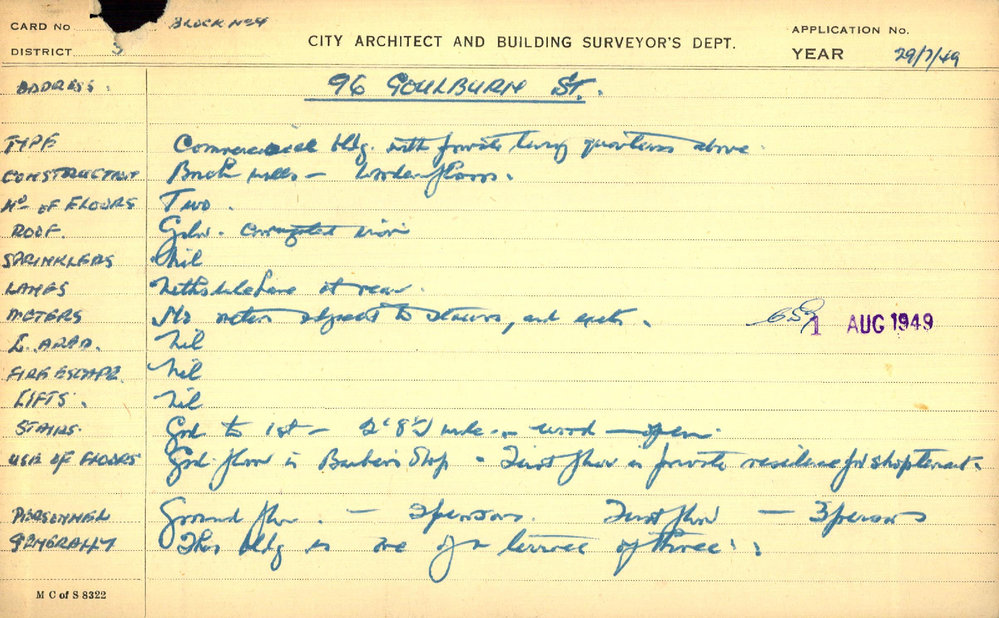 CARD No BLOCK No 4 APPLICATION No.
DISTRICT 3 CITY ARCHITECT AND BUILDING SURVEYOR'S DEPT. YEAR 29/7/49
ADDRESS. 96 GOULBURN ST.
TYPE Commercial bldg. with private living quarters above.
CONSTRUCTION Brick walls – wooden floors.
No OF FLOORS Two.
ROOF. Galv. corrugated iron
SPRINKLERS Nil
LANES Nithsdale Lane at rear.
METERS No meters adjacent to stairs, and exits.
1 AUG 1949
L. AREA. Nil
FIRE ESCAPE. Nil
LIFTS. Nil
STAIRS. Grd to 1st – 2'8" wide – wood – open.
USE OF FLOORS Grd. floor is Barber's Shop – First floor is private residence for shop tenant.
PERSONNEL Ground floor. – 2 persons. First floor – 3 persons
GENERALLY This bldg is one of a terrace of three.
M C of S 8322